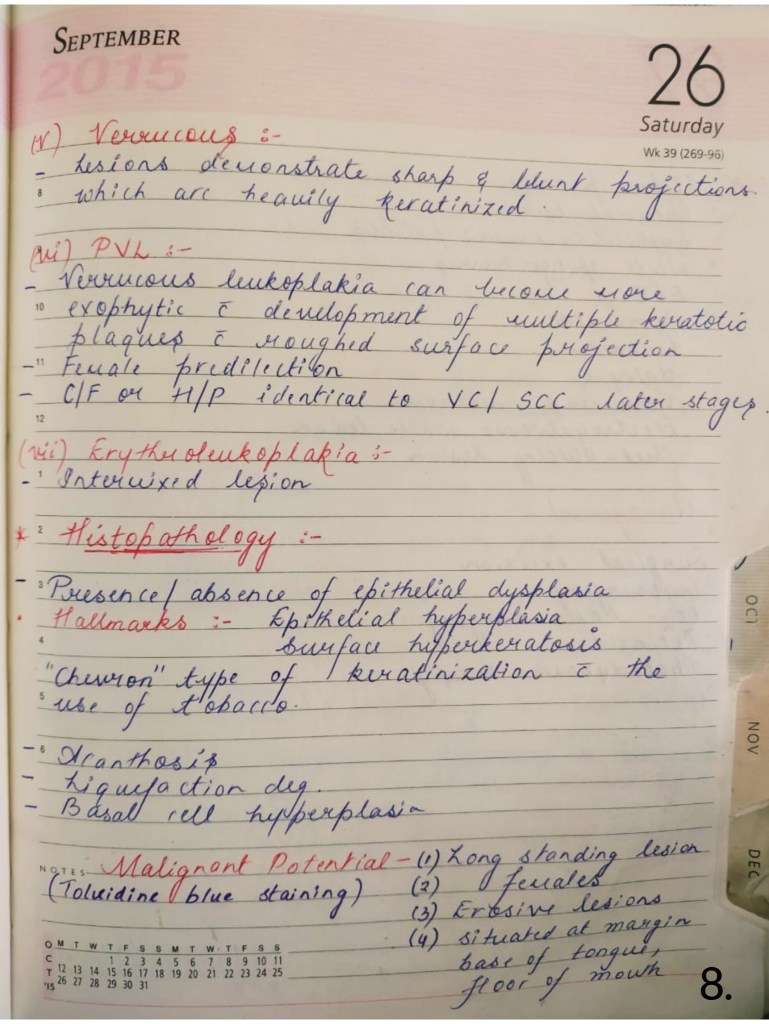 SEPTEMBER
2015
26
Saturday
Wk 39 (269-96)
(v) Verrucous :-
- Lesions demonstrate sharp & blunt projections.
8 which are heavily keratinized.
(vi) PVL :-
- Verrucous leukoplakia can become more
10 exophytic c̄ development of multiple keratotic
plaques c̄ roughed surface projection
- 11 Female predilection
- C/F or H/P identical to VC/ SCC later stages.
12
(vii) Erythroleukoplakia :-
- 1 Intermixed lesion
* 2 Histopathology :-
- 3 Presence/ absence of epithelial dysplasia
• Hallmarks :- Epithelial hyperplasia
4 Surface hyperkeratosis
"Chevron" type of keratinization c̄ the
5 use of tobacco.
- 6 Acanthosis
- Liquefaction deg.
- Basal cell hypperplasia
NOTES Malignant Potential - (1) Long standing lesion
(Toluidine blue staining) (2) females
(3) Erosive lesions
(4) situated at margin
base of tongue,
floor of mouth
O M T W T F S S M T W T F S S
C 1 2 3 4 5 6 7 8 9 10 11
T 12 13 14 15 16 17 18 19 20 21 22 23 24 25
'15 26 27 28 29 30 31
8.
OCT
NOV
DEC